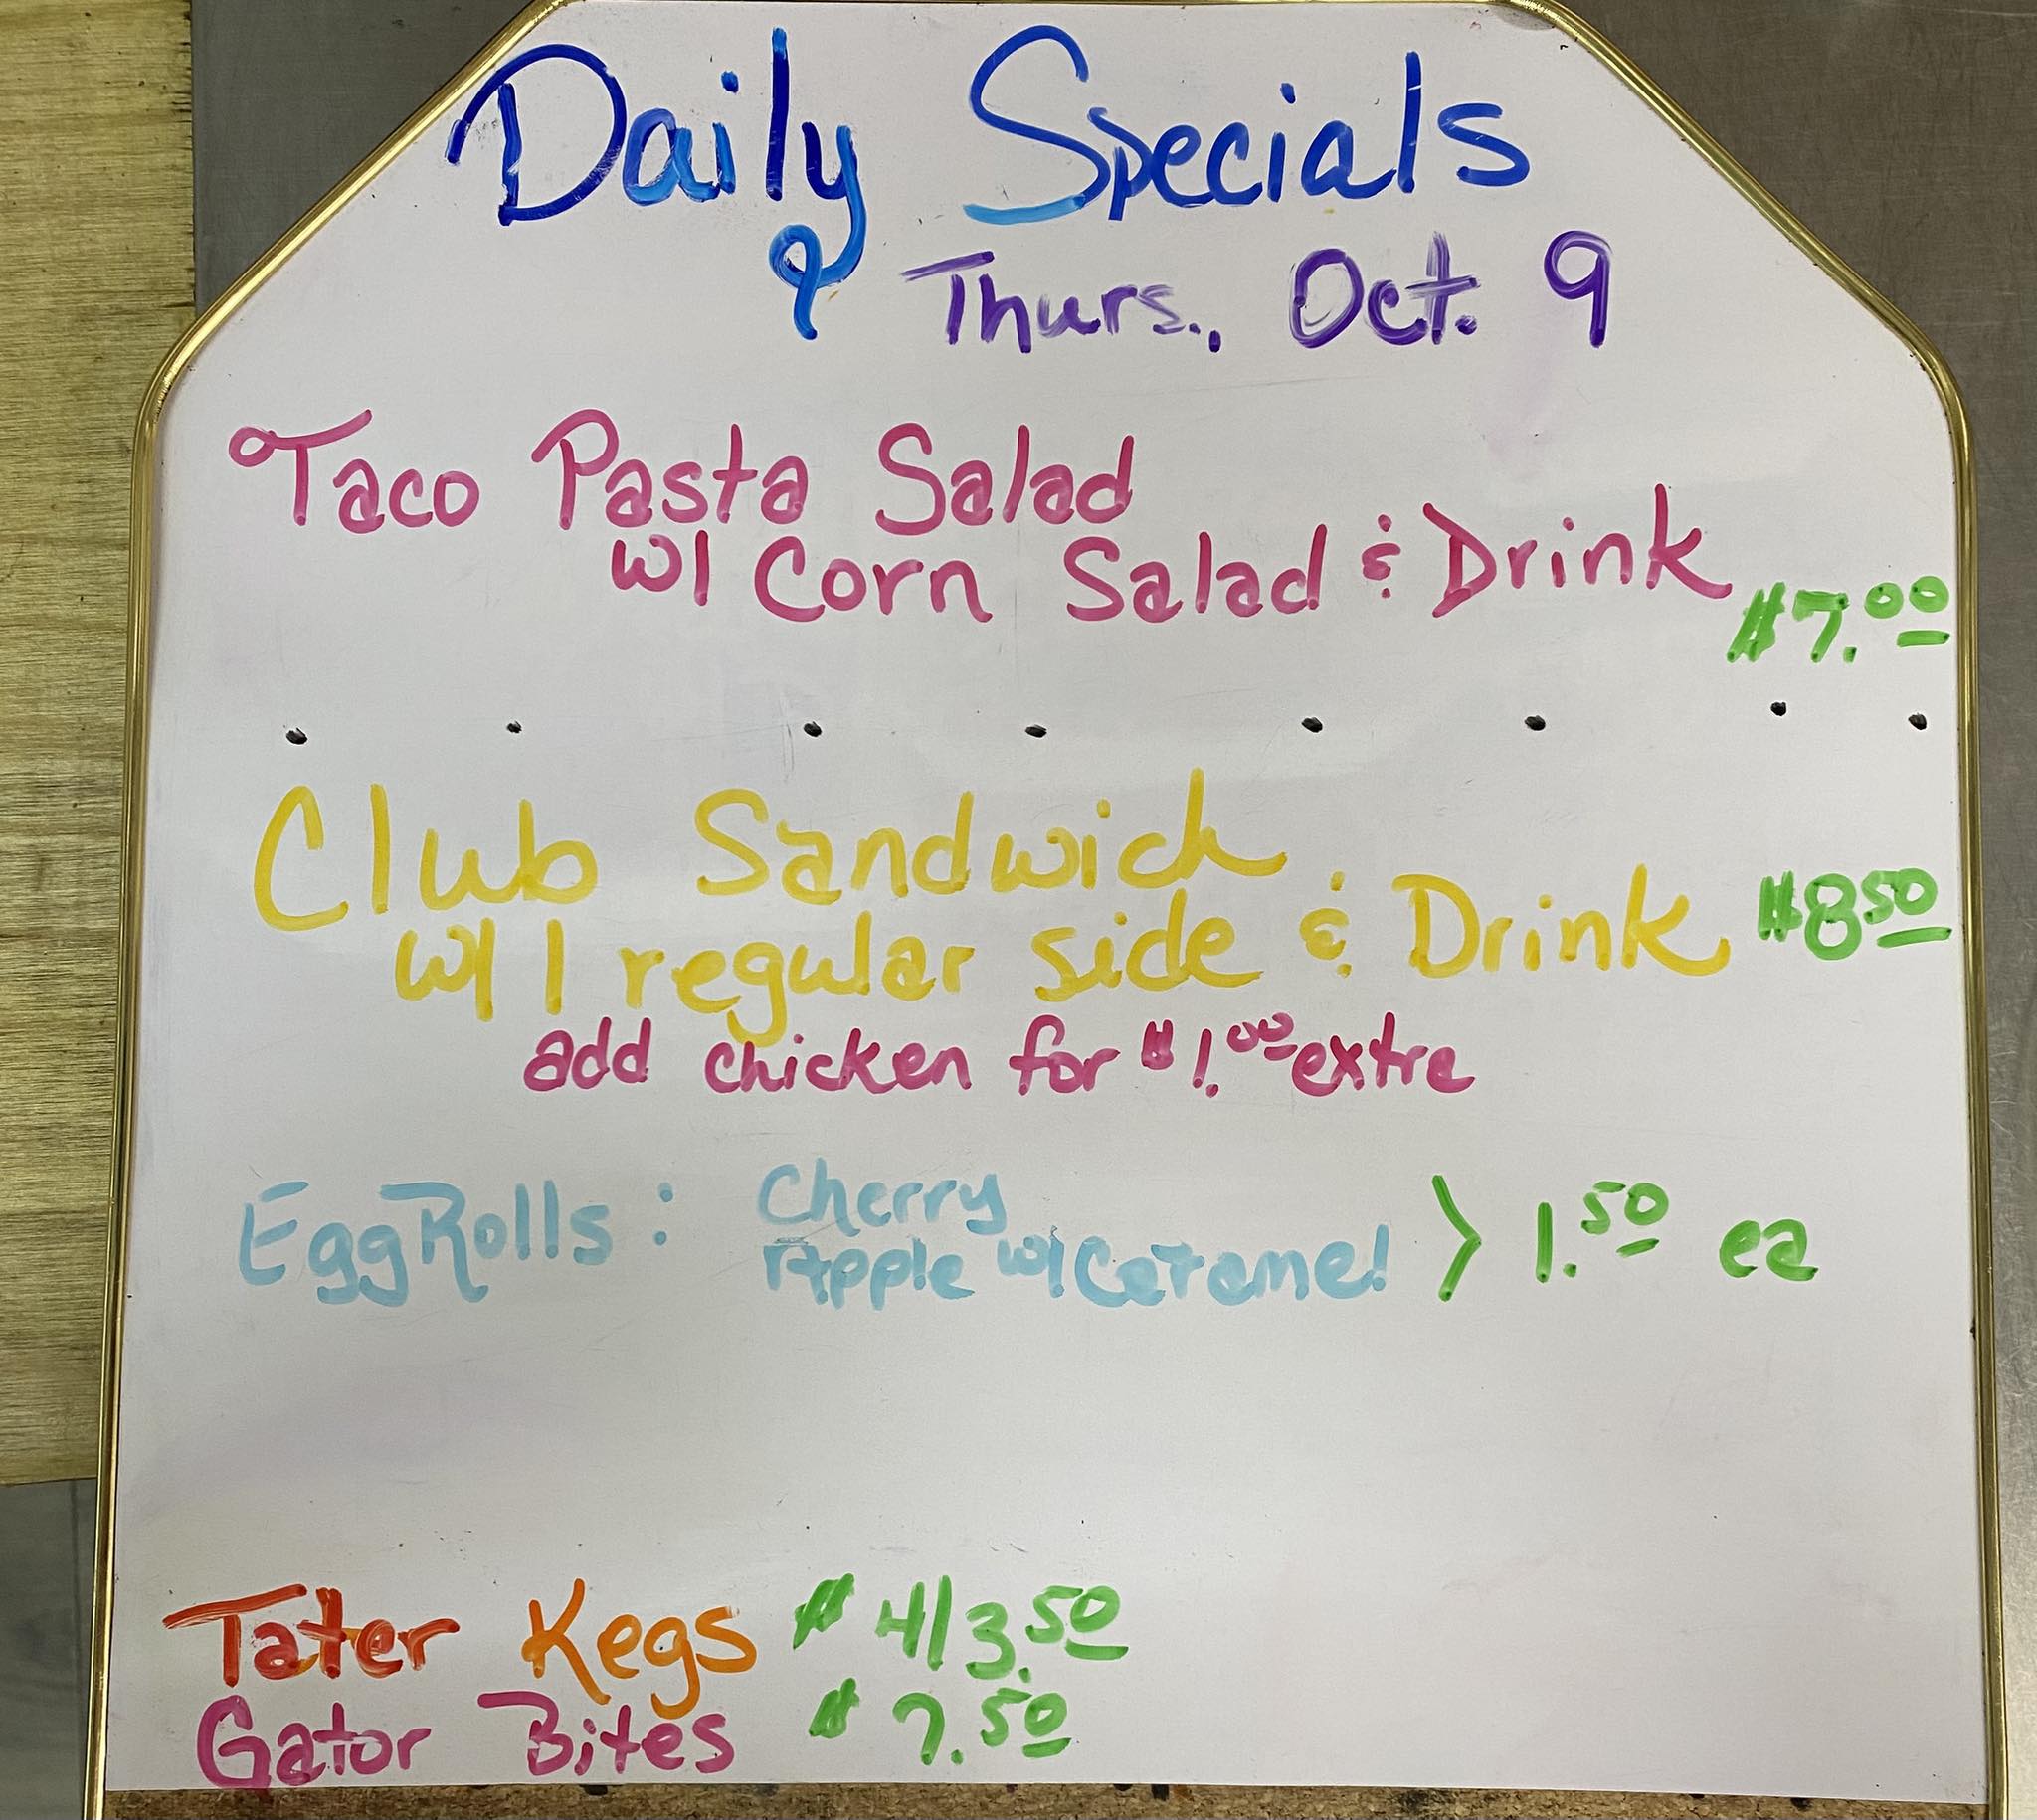 Daily Specials
Thurs., Oct. 9
Taco Pasta Salad
w/ Corn Salad & Drink $7.00
Club Sandwich
w/ 1 regular side & Drink $8 50
add chicken for $1.00 extra
EggRolls: Cherry
Apple w/ Caramel > 1.50 ea
Tater Kegs $ 4/3.50
Gator Bites $ 7.50